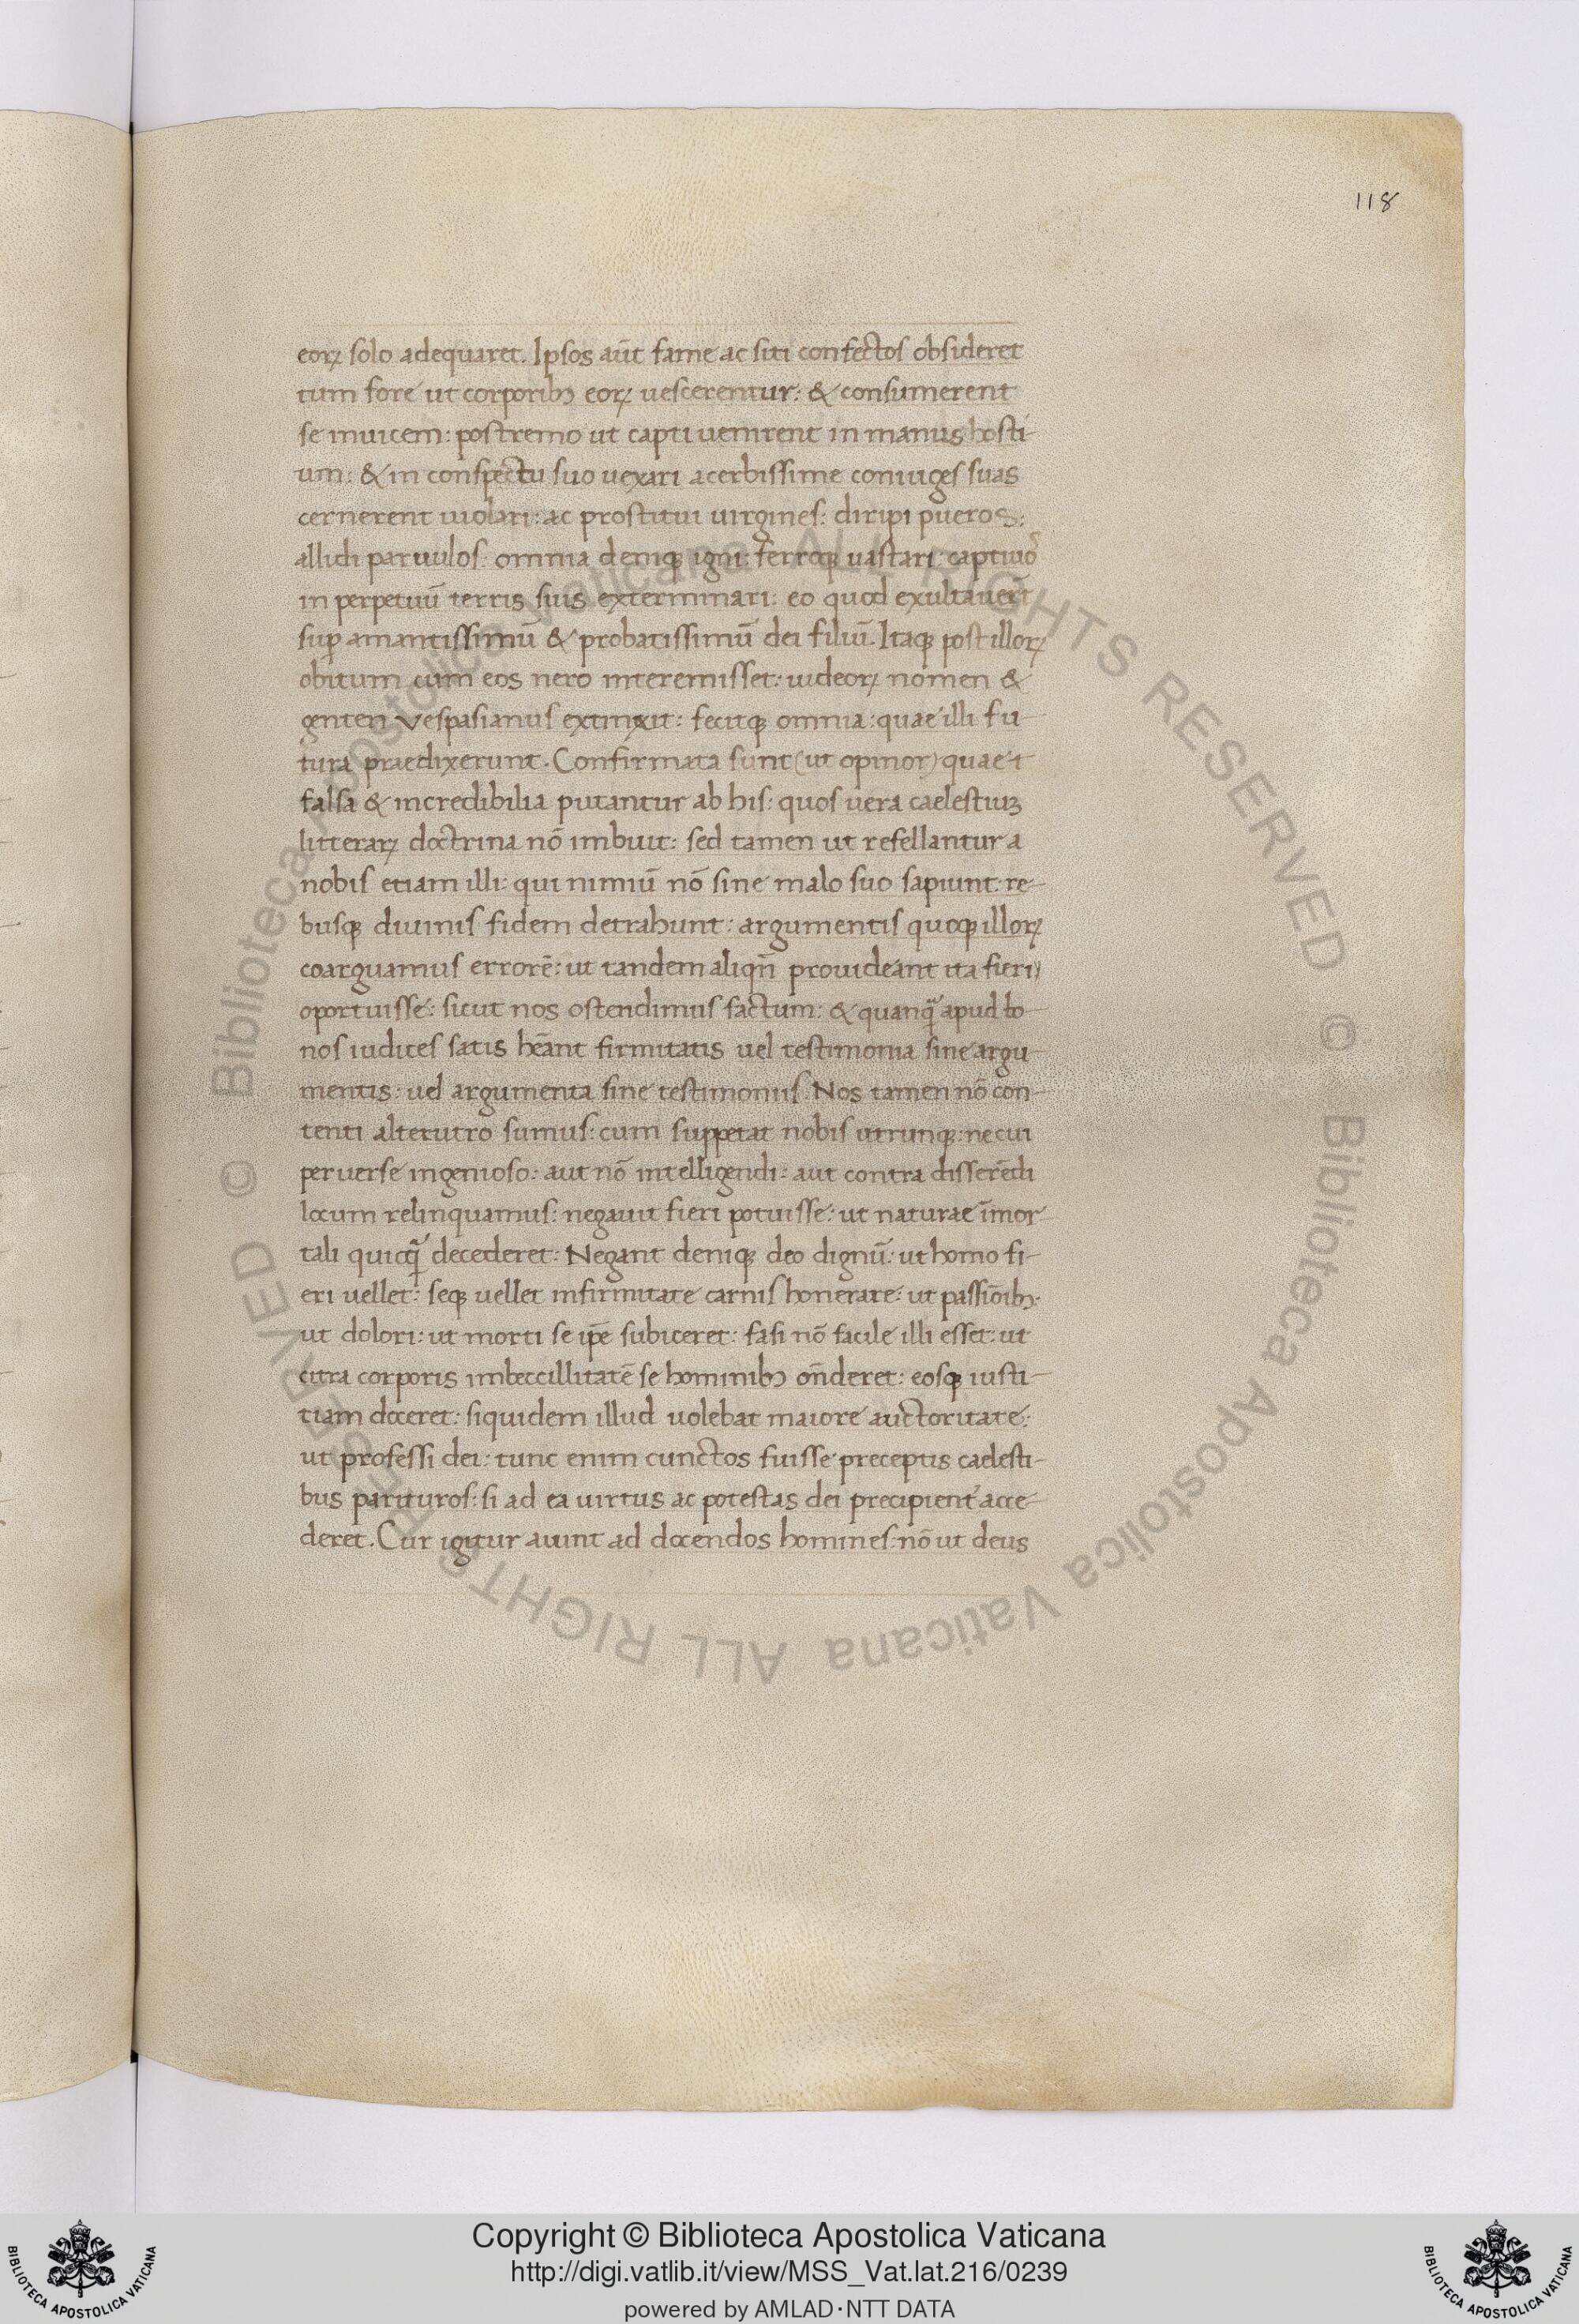 118
eoꝝ solo adequaret. Ipsos aūt fame ac siti confectos obsideret
tum fore ut corporibꝫ eoꝝ uescerentur: & consumerent
se inuicem: postremo ut capti uenirent in manus hosti-
um: & in conspectu suo uexari acerbissime coniuges suas
cernerent uiolari: ac prostitui uirgines: diripi pueros:
allidi paruulos: omnia deniqꝫ igni: ferroqꝫ uastari: captiuo
in perpetuū terris suis exterminari: eo quod exultauer̄t
suꝑ amantissimū & probatissimū dei filiū. Itaqꝫ post illoꝝ
obitum cum eos nero interemisset: iudeoꝝ nomen &
genten Vespasianus extinxit: fecitqꝫ omnia: quae illi fu-
tura praedixerunt. Confirmata sunt (ut opinor) quae t
falsa & incredibilia putantur ab his: quos uera caelestiuꝫ
litteraꝝ doctrina nō imbuit: sed tamen ut refellantur a
nobis etiam illi: qui nimiū nō sine malo suo sapiunt. re-
busqꝫ diuinis fidem detrahunt: argumentis quoqꝫ illoꝝ
coarguamus errorē: ut tandem aliqn̄ prouideant ita fieri
oportuisse: sicut nos ostendimus factum: & quanqᷓ apud bo-
nos iudices satis hēant firmitatis uel testimonia sine argu-
mentis: uel argumenta sine testimoniis. Nos tamen nō con-
tenti alterutro sumus: cum suppetat nobis utrunqꝫ: ne cui
peruerse ingenioso: aut nō intelligendi: aut contra disserēdi
locum relinquamus: negauit fieri potuisse: ut naturae īmor-
tali quicqᷓ decederet: Negant deniqꝫ deo dignū: ut homo fi-
eri uellet: seqꝫ uellet infirmitate carnis honerare: ut passiōibꝫ
ut dolori: ut morti se ip̄e subiceret: fasi nō facile illi esset: ut
citra corporis imbeccillitatē se hominibꝫ on̄deret: eosqꝫ iusti-
tiam doceret: siquidem illud uolebat maiore auctoritate:
ut professi dei: tunc enim cunctos fuisse preceptis caelesti-
bus parituros: si ad ea uirtus ac potestas dei precipient' acce-
deret. Cur igitur aiunt ad docendos homines: nō ut deus
© Biblioteca Apostolica Vaticana ALL RIGHTS RESERVED © Biblioteca Apostolica Vaticana ALL RIGHTS RESERVED
Copyright © Biblioteca Apostolica Vaticana
http://digi.vatlib.it/view/MSS_Vat.lat.216/0239
powered by AMLAD·NTT DATA
BIBLIOTECA APOSTOLICA VATICANA
BIBLIOTECA APOSTOLICA VATICANA